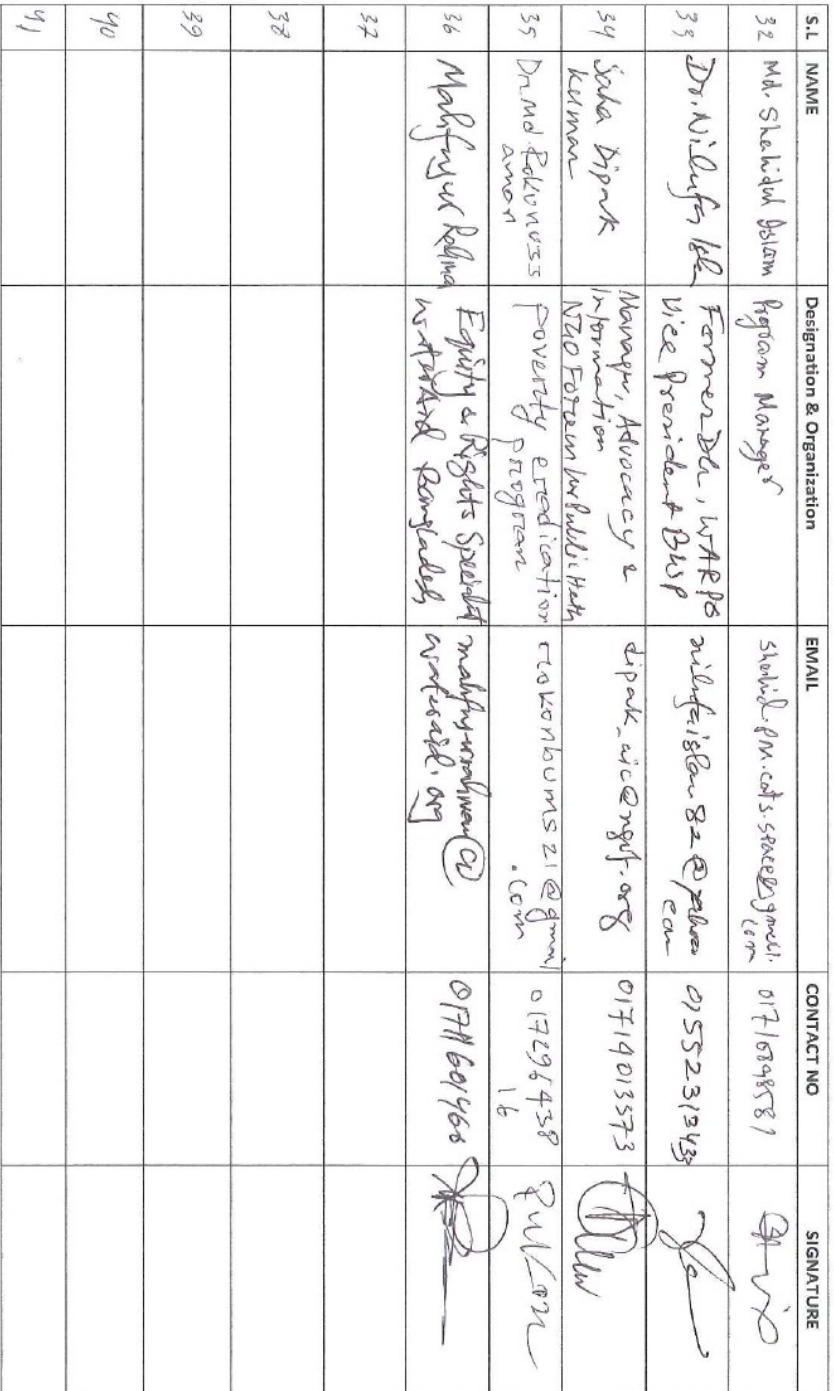 S.L NAME Designation & Organization EMAIL CONTACT NO SIGNATURE
32 Md. Shahidul Islam Program Manager
01710898589
33 Dr. Nilufa Islam Former DG, WARPO
Vice President BWP
34 Saha Dipak Kumar Manager, Advocacy &
Information
NGO Forum for Public Health
dipak_aic@ngof.org
01714013573
35 Dr. Md. Rokonuss
aman
poverty eradication
program
rokonbums21@gmail
.com
017296438
16
36 Mahfuzur Rahman Equity & Rights Specialist
WaterAid Bangladesh
mahfuzurrahman@
wateraid.org
37
38
39
40
41